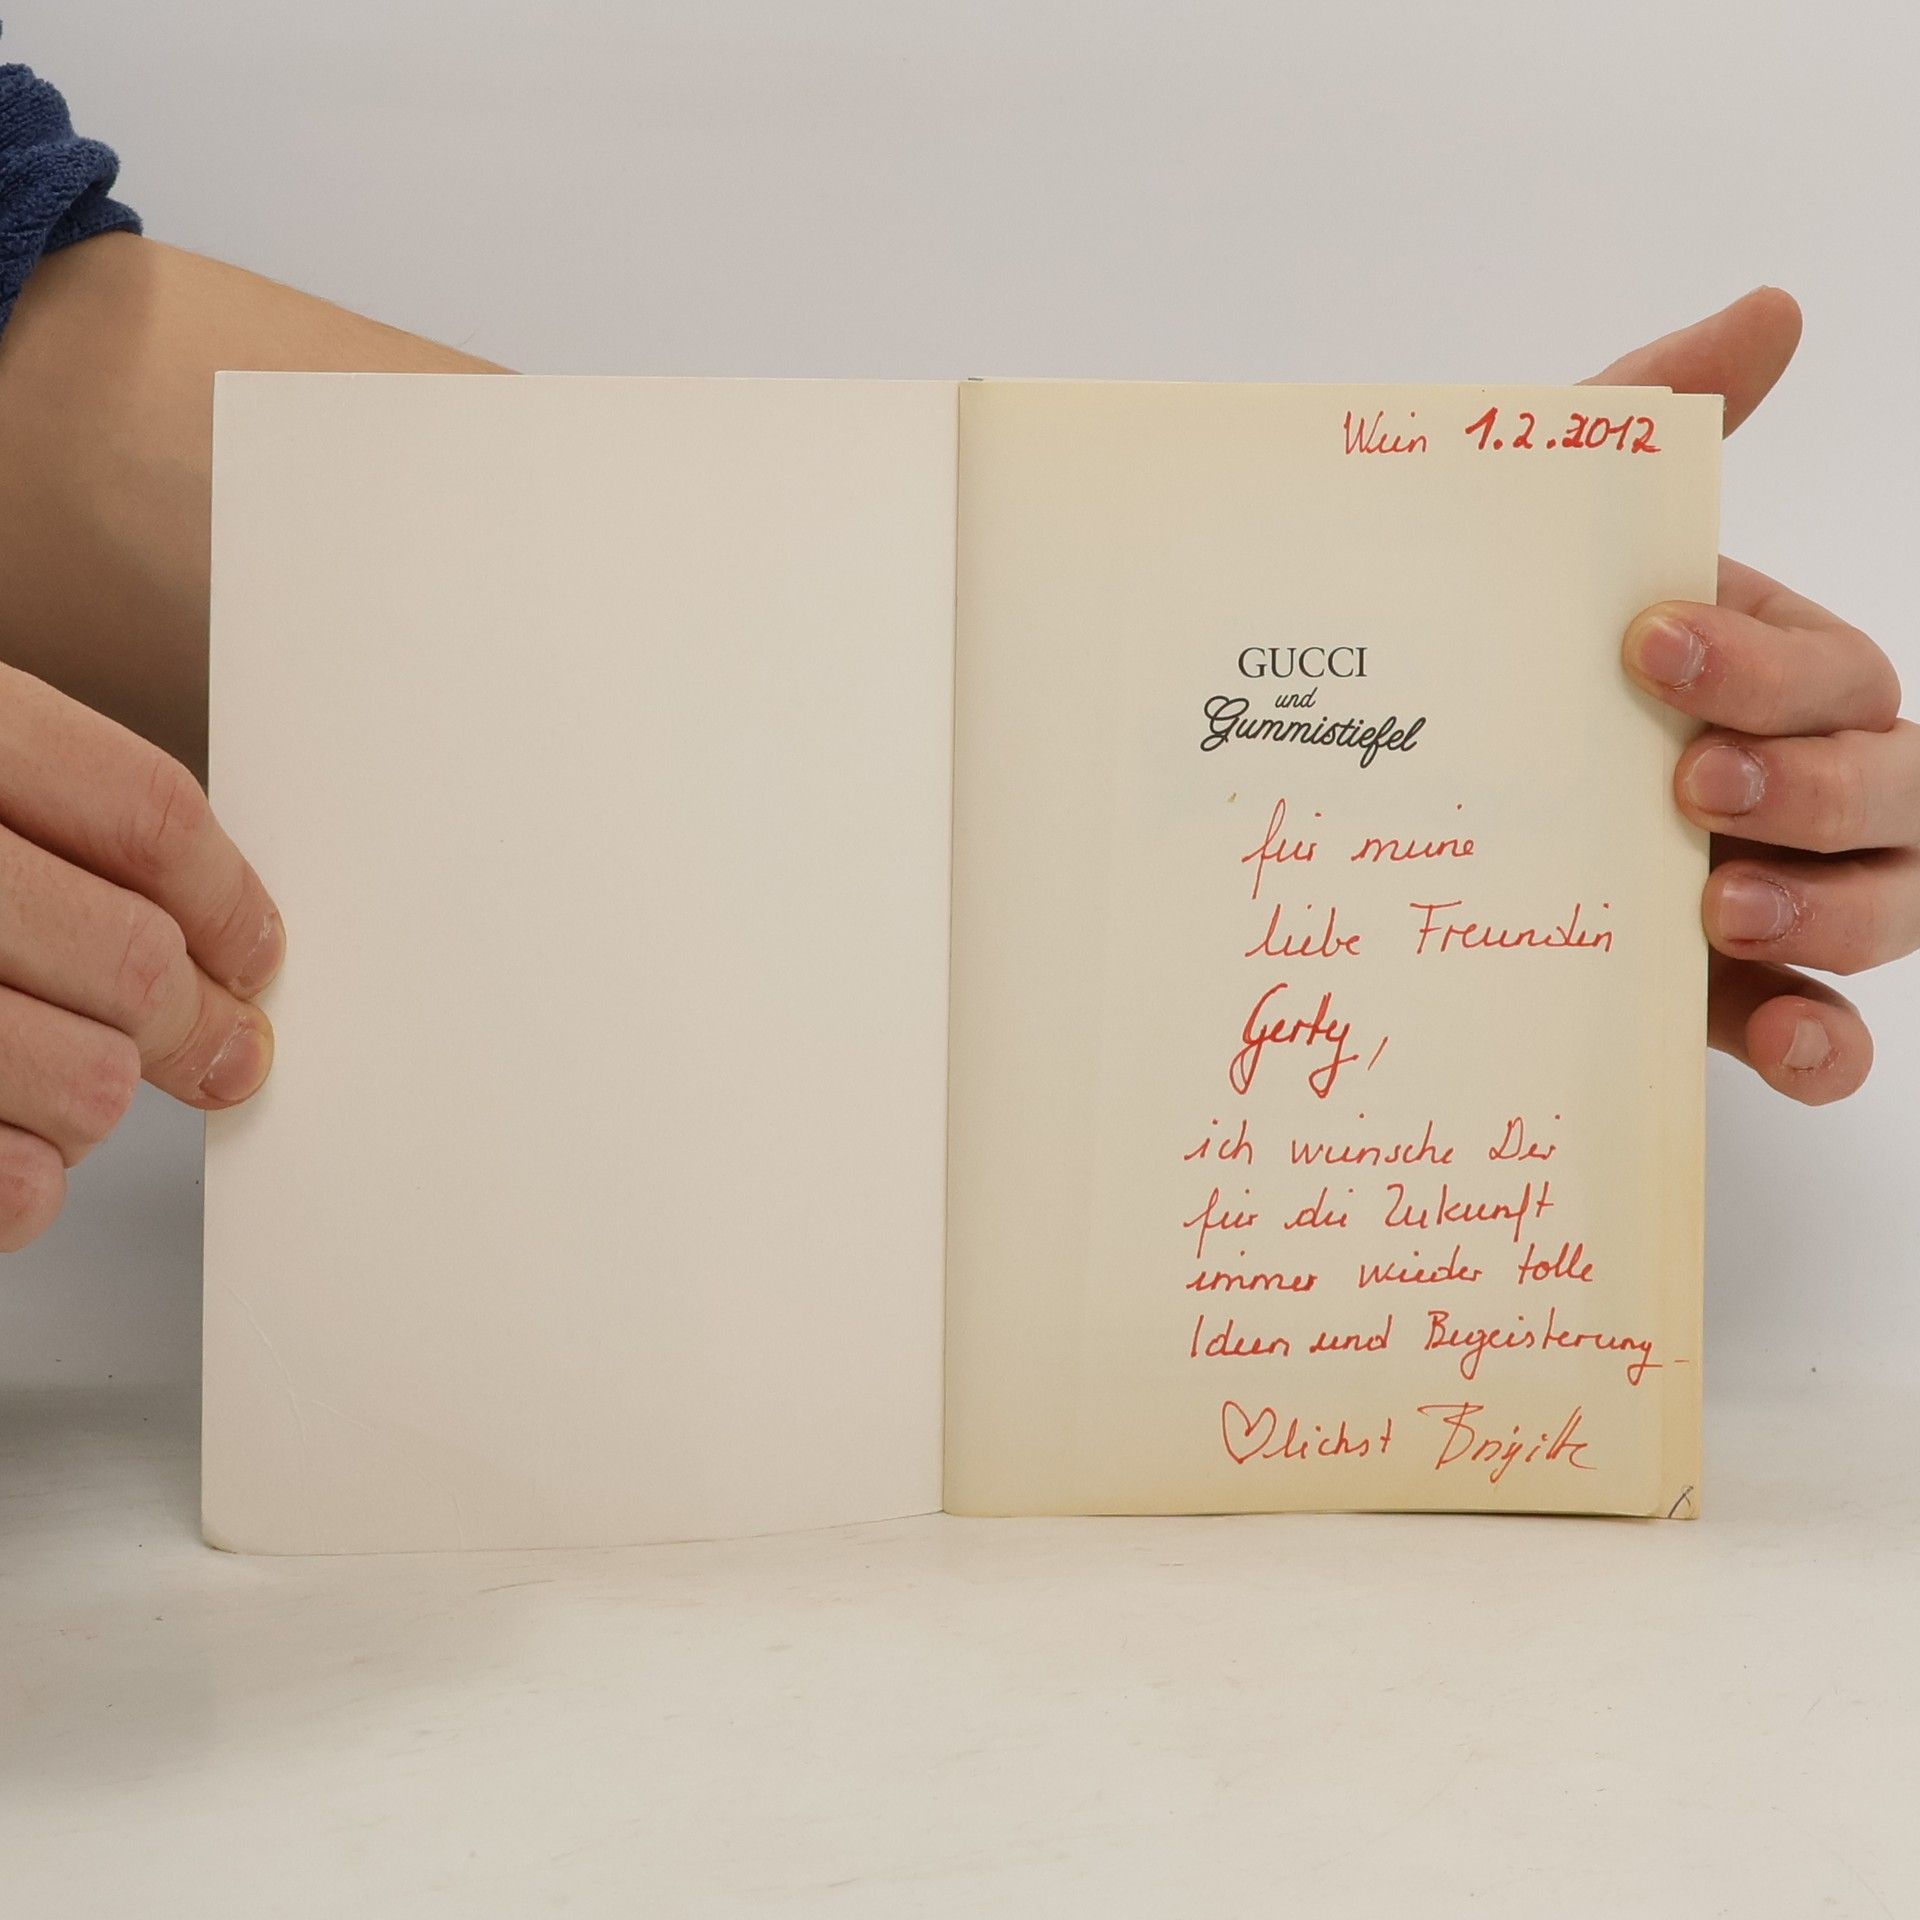 Wien 1.2.2012
GUCCI
und
Gummistiefel
für meine
liebe Freundin
Gerty,
ich wünsche Dir
für die Zukunft
immer wieder tolle
Ideen und Begeisterung –
♡lichst Brigitte